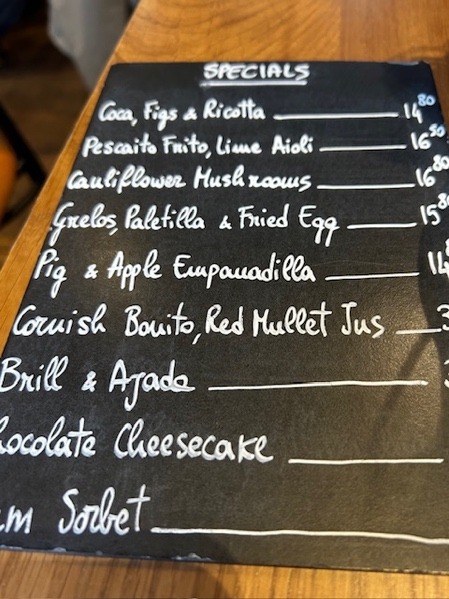 SPECIALS
Coca, Figs & Ricotta 14 80
Pescaito Frito, Lime Aioli 16 50
Cauliflower Mushrooms 16 80
Grelos, Paletilla & Fried Egg 15 80
Pig & Apple Empanadilla
Cornish Bonito, Red Mullet Jus
Brill & Ajada
Cheesecake
Sorbet